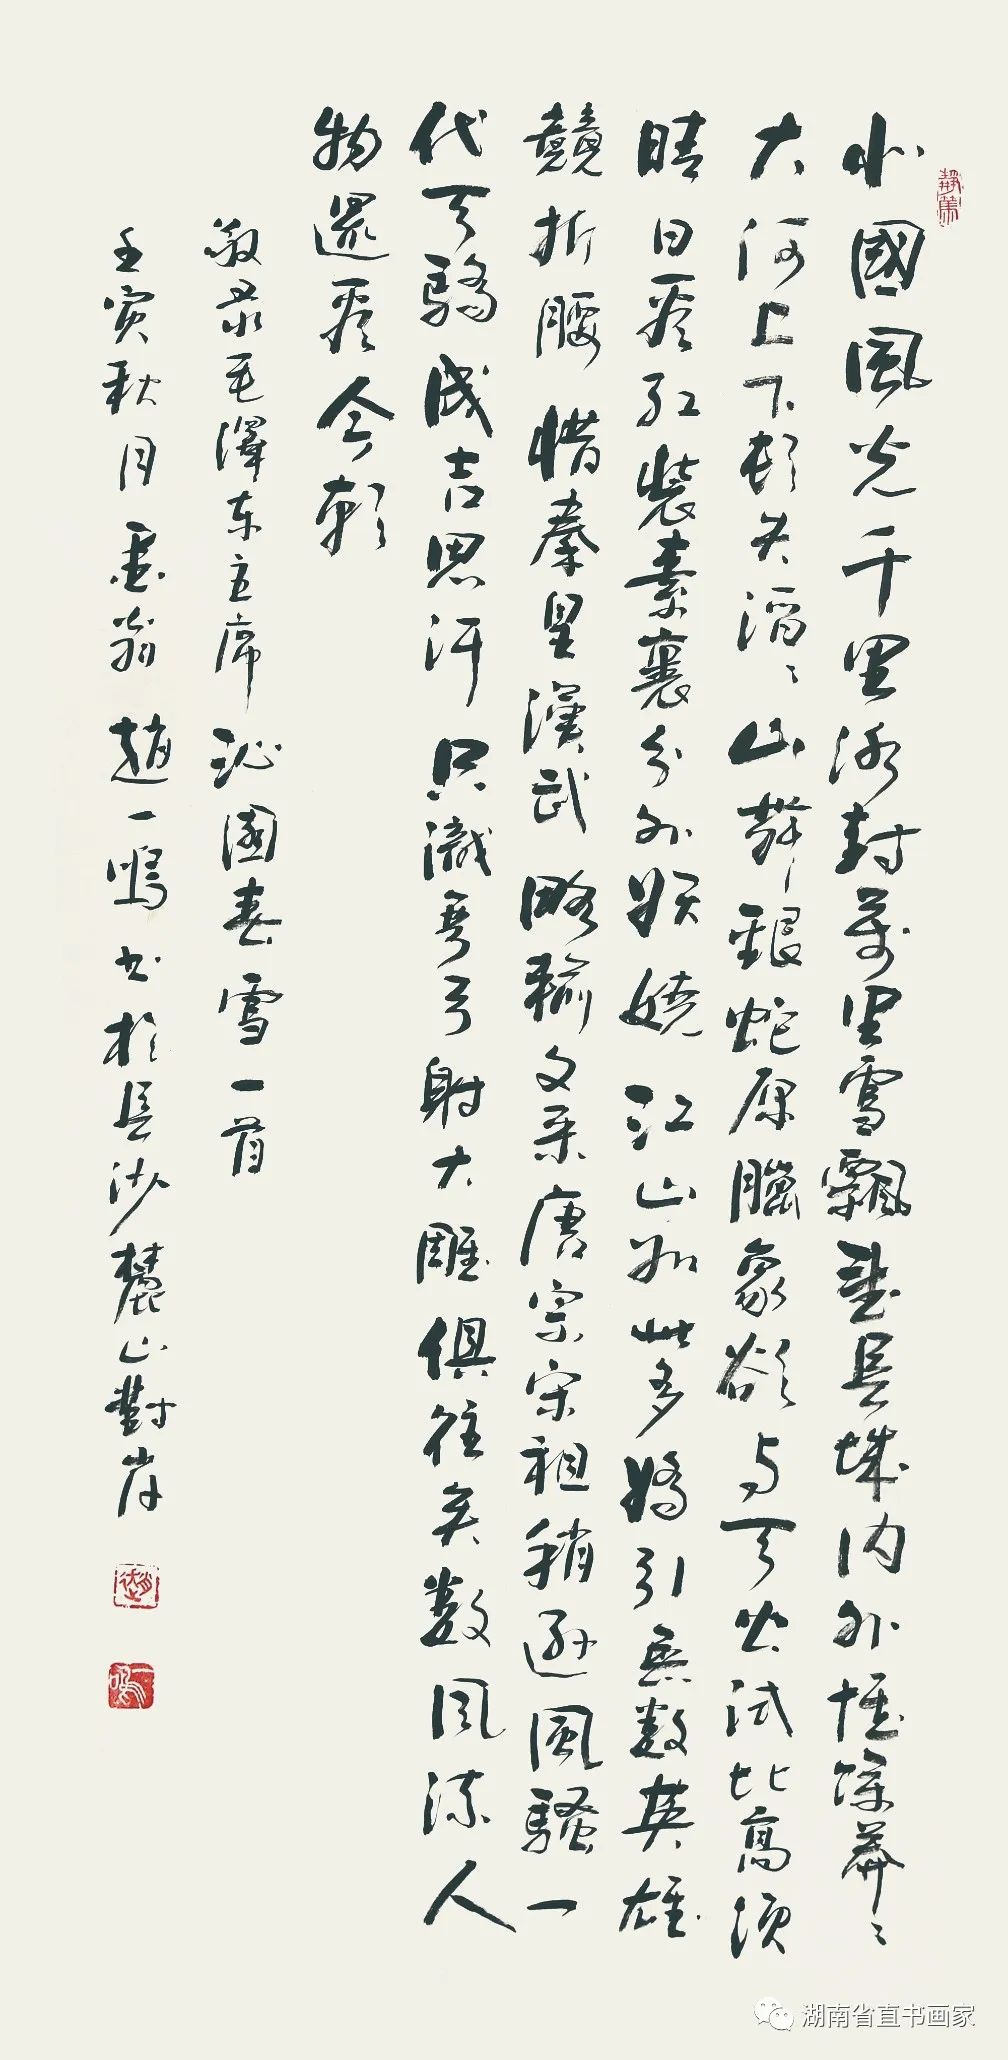 北國風光千里冰封萬里雪飄望長城内外惟餘莽〻
大河上下頓失滔〻山舞銀蛇原臘象欲与天公試比高須
晴日看红裝素裹分外妖嬈江山如此多嬌引無數英雄
競折腰惜秦皇漢武略輸文采唐宗宋祖稍遜風騷一
代天驕成吉思汗只識彎弓射大雕俱往矣数風流人
物還看今朝
敬录毛澤东主席沁園春雪一首
壬寅秋月翁趙一鳴书於長沙麓山對岸
趙
一鳴
湖南省直书画家